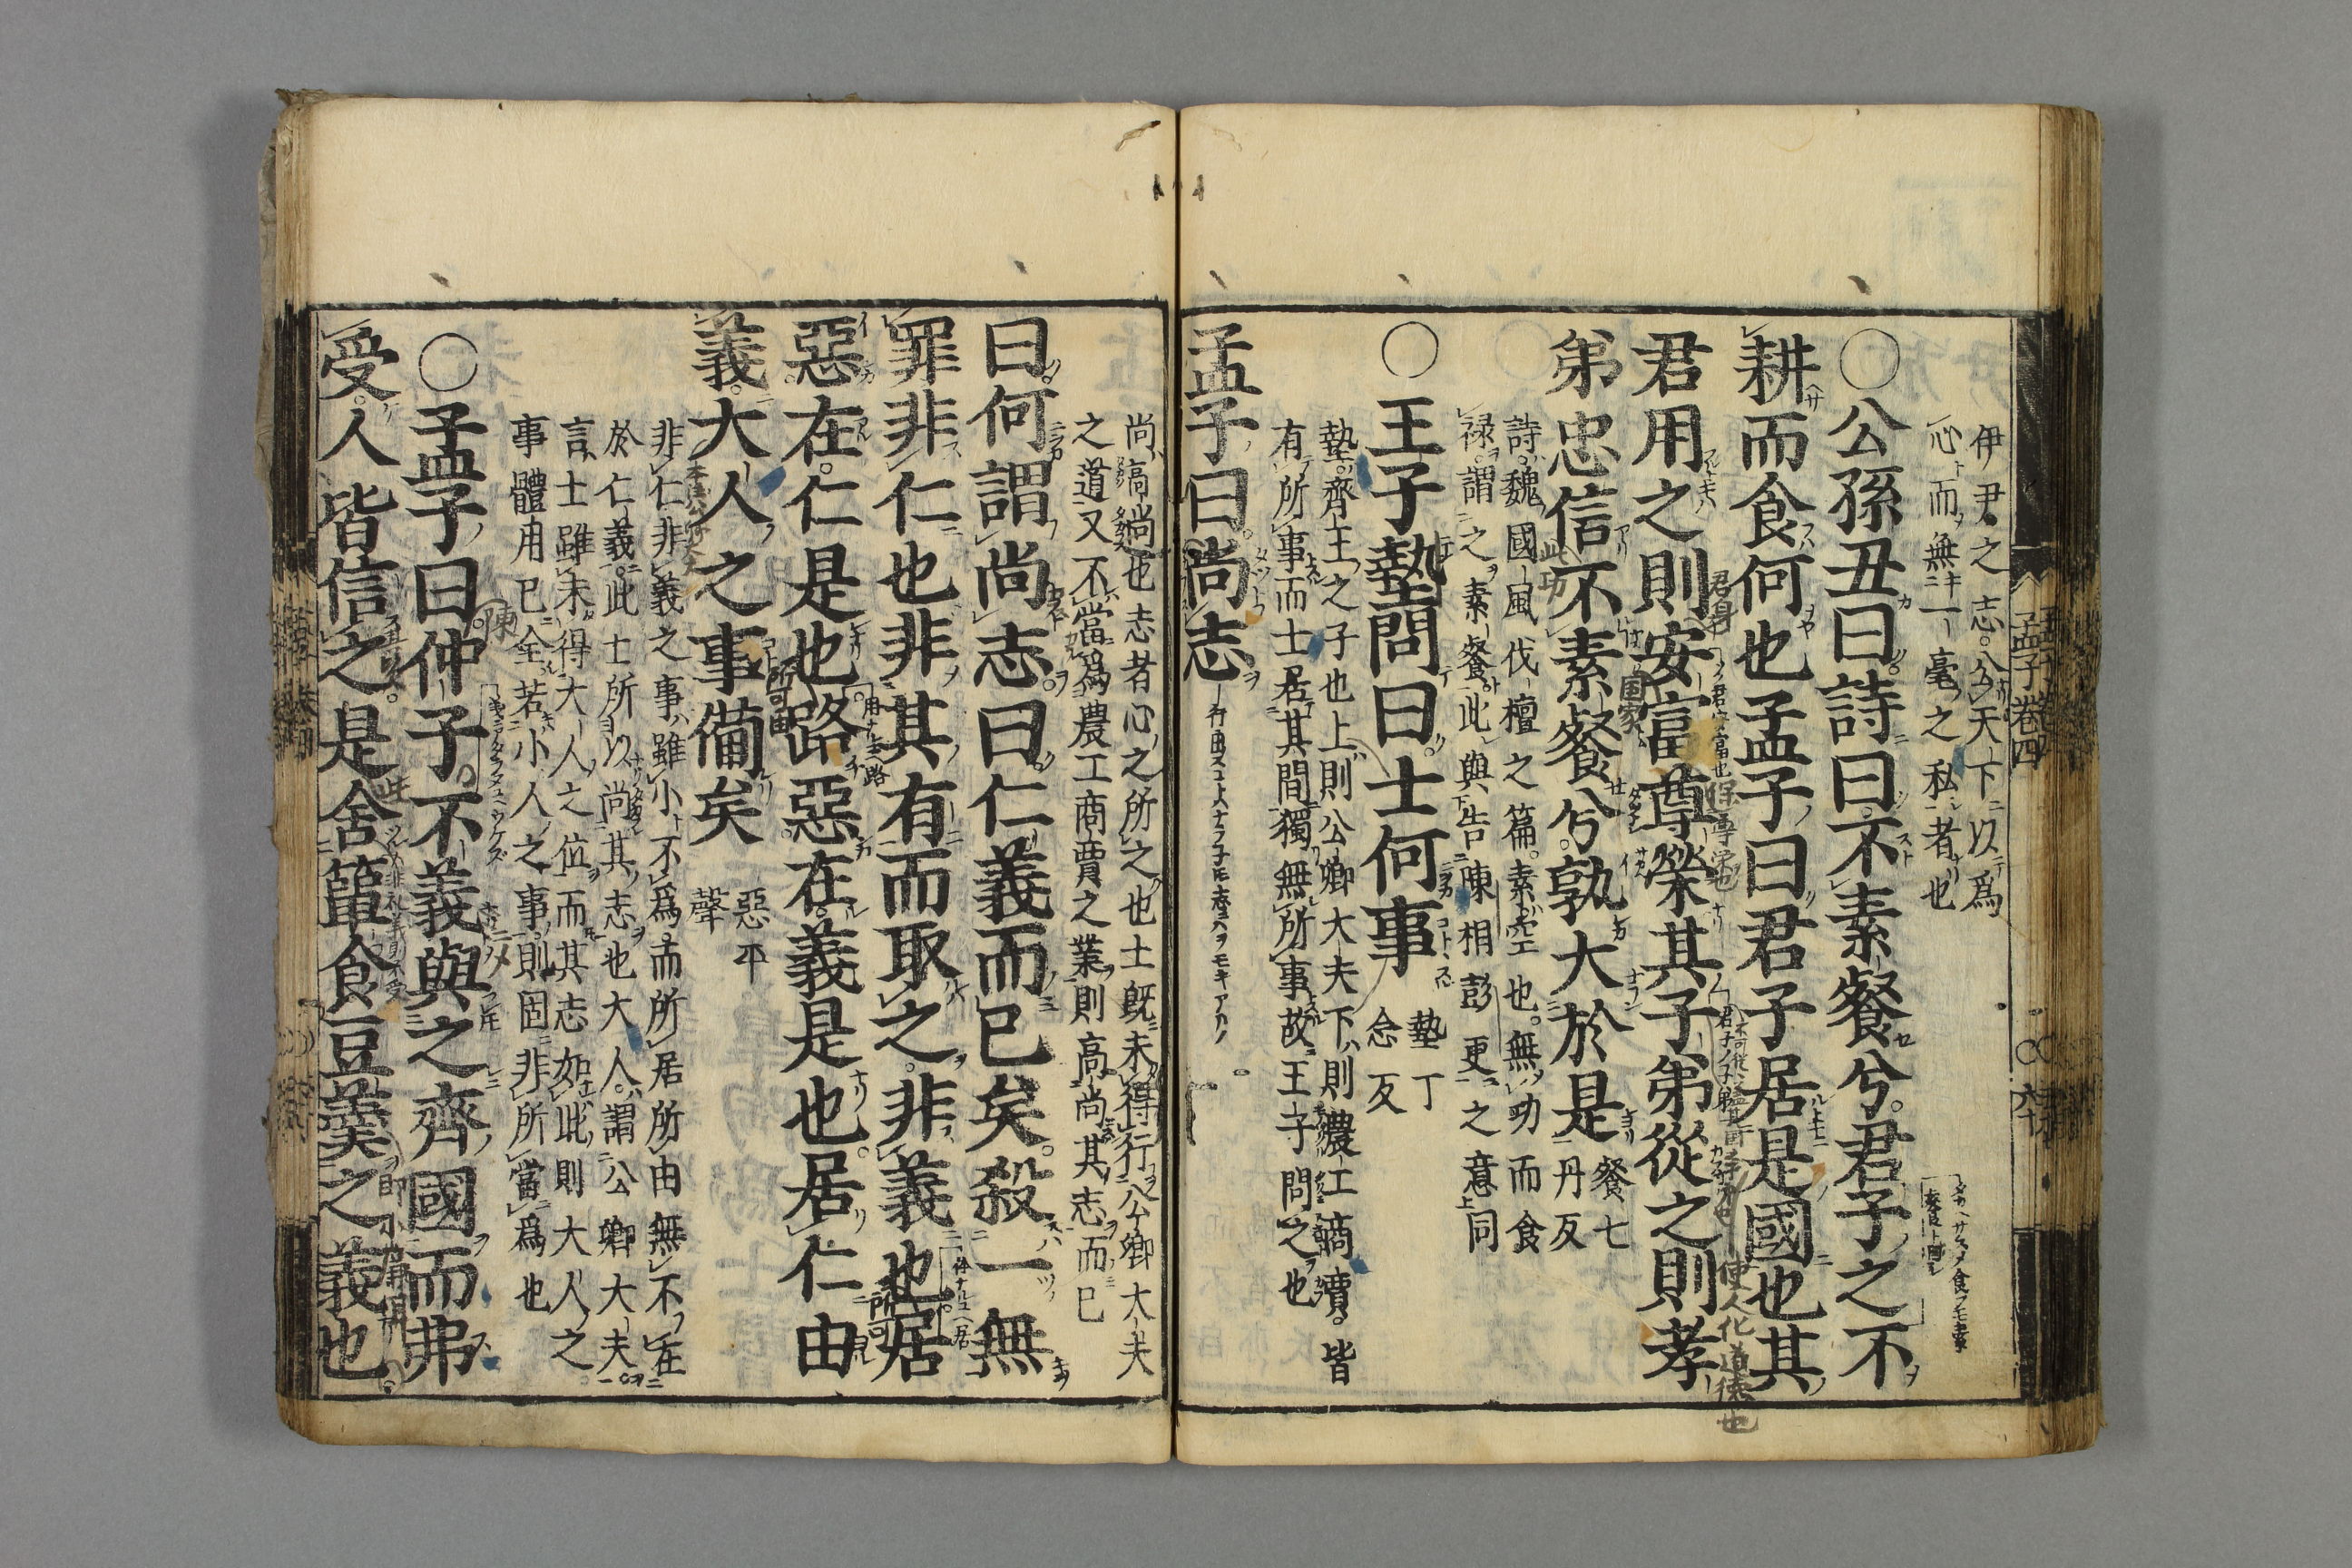 伊尹之志公天下以爲
心而無一毫之私者也
○公孫丑曰詩曰不素餐兮君子之不
耕而食何也孟子曰君子居是國也其
君用之則安富尊榮其子弟從之則孝
弟忠信不素餐兮孰大於是
餐七
丹反
詩魏國風伐檀之篇素空也無功而食
祿謂之素餐此與告陳相彭更之意同
○王子墊問曰士何事
墊丁
念反
墊齊王之子也上則公卿大夫下則農工商賈皆
有所事而士居其間獨無所事故王子問之也
孟子曰尚志
尚高尚也志者心之所之也士旣未得行公卿大夫
之道又不當爲農工商賈之業則高尚其志而已
曰何謂尚志曰仁義而已矣殺一無
罪非仁也非其有而取之非義也居
惡在仁是也路惡在義是也居仁由
義大人之事備矣
惡平
聲
非仁非義之事雖小不爲而所居所由無不在
於仁義此士所以尚其志也大人謂公卿大夫
言士雖未得大人之位而其志如此則大人之
事體用已全若小人之事則固非所當爲也
○孟子曰仲子不義與之齊國而弗
受人皆信之是舍簞食豆羹之義也
孟子卷四
六十